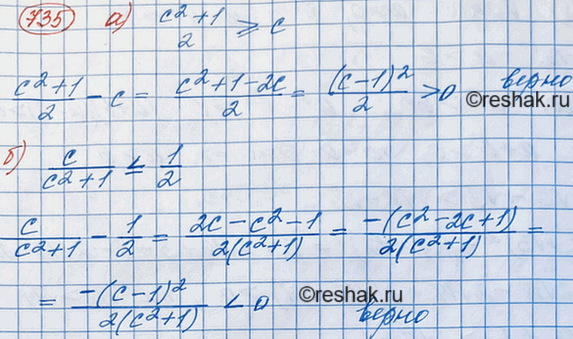 735 а) (c²+1)/2 ≥ c
(c²+1)/2 - c = (c²+1-2c)/2 = (c-1)²/2 > 0 верно
©reshak.ru
б) c/(c²+1) ≤ 1/2
c/(c²+1) - 1/2 = (2c-c²-1)/(2(c²+1)) = (-(c²-2c+1))/(2(c²+1)) =
= (-(c-1)²)/(2(c²+1)) < 0 верно
©reshak.ru